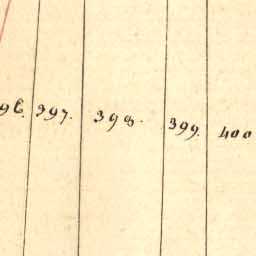 96. 397. 398. 399. 400